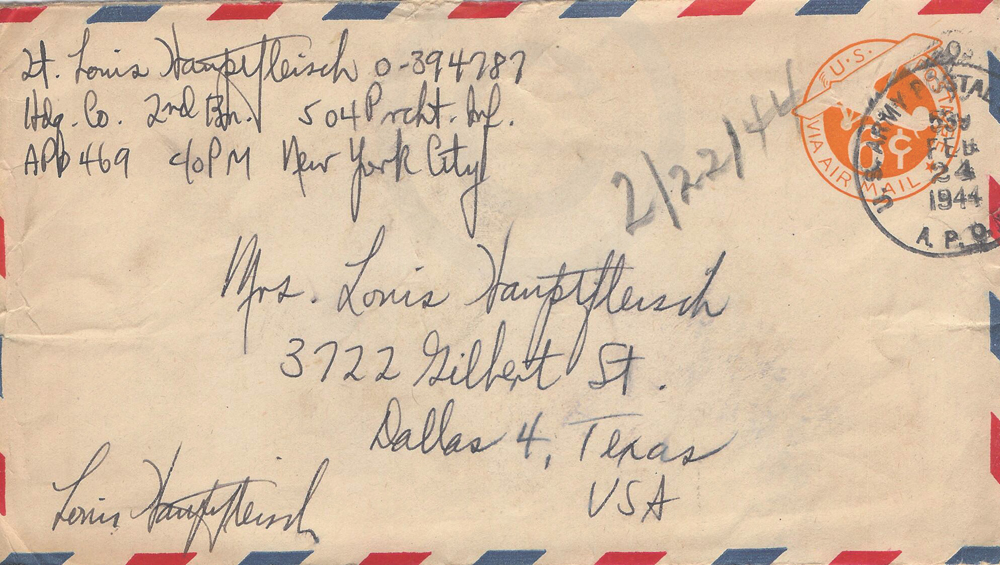 Lt. Louis Hauptfleisch O-394787
Hdq. Co. 2nd Bn. 504 Prcht. Inf.
APO 469 c/o PM New York City
2/22/44
U.S. POSTAGE
6¢
VIA AIR MAIL
U.S. ARMY POSTAL
FEB
24
1944
A.P.O.
Mrs. Louis Hauptfleisch
3722 Gilbert St.
Dallas 4, Texas
USA
Louis Hauptfleisch